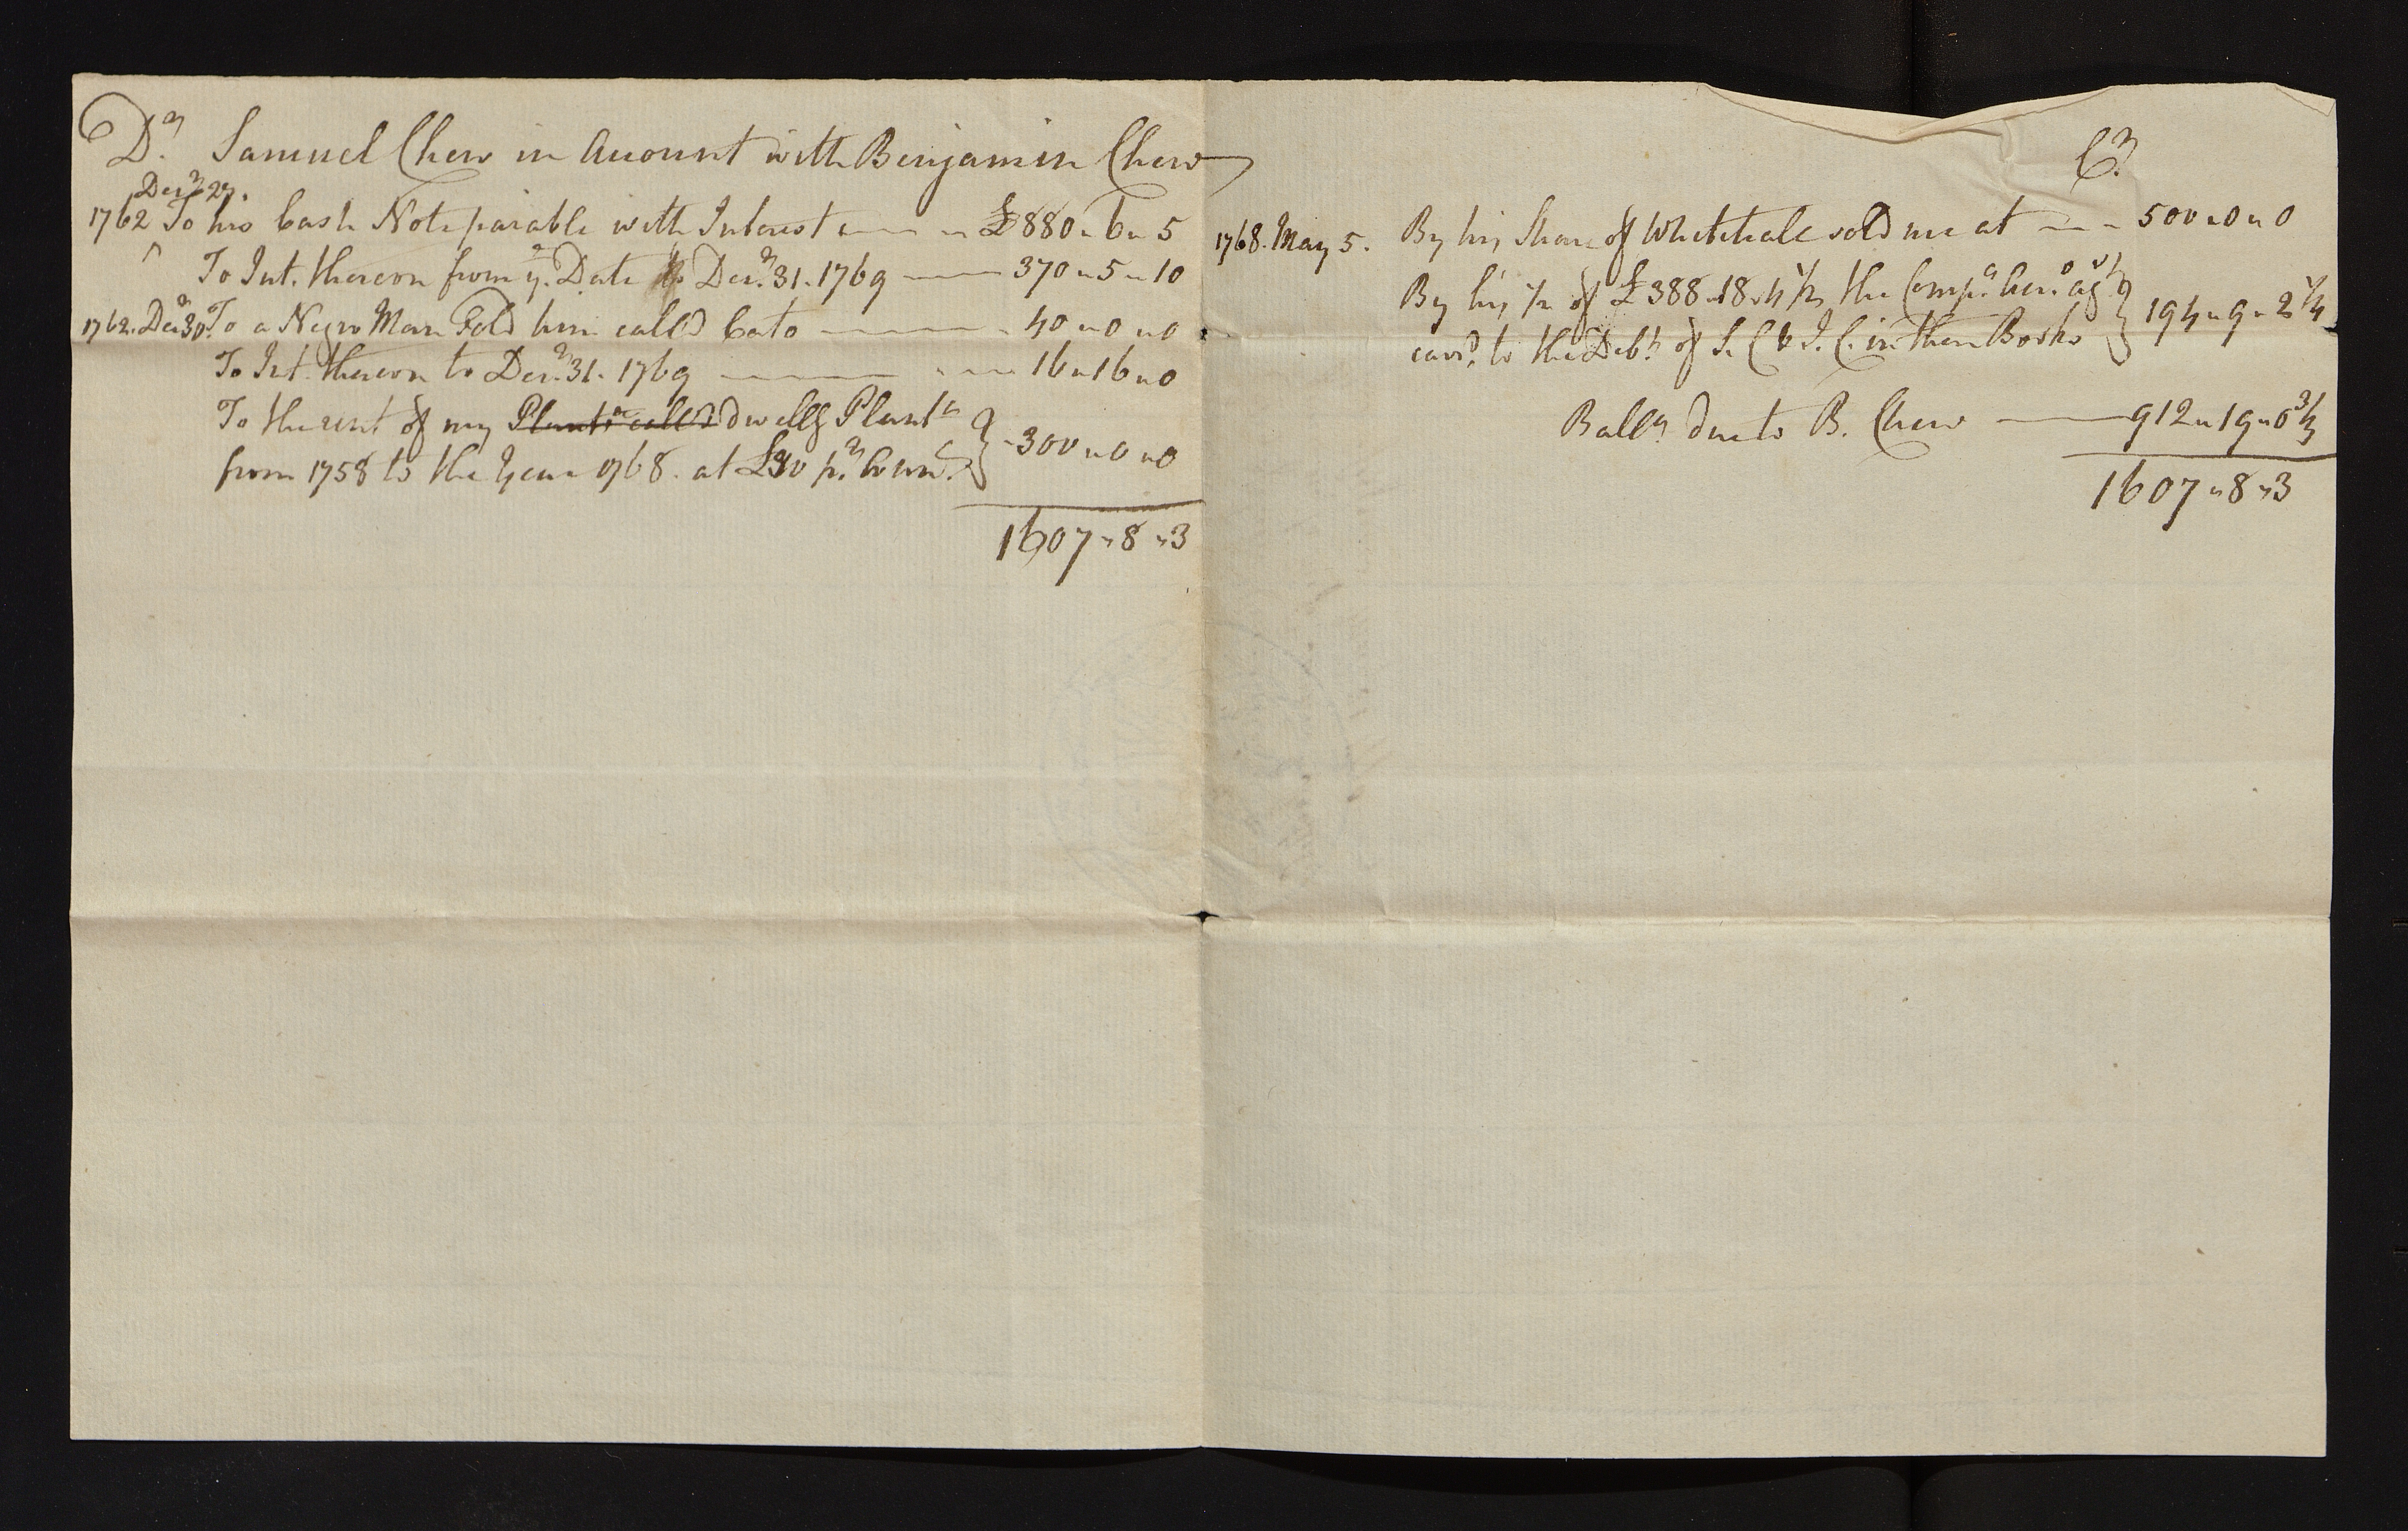 Dr. Samuel Chew in Account with Benjamin Chew
Decr. 27.
1762 To his Cash Note paiable with Interest £880 " 6 " 5
To Int. thereon from ye. Date to Decr. 31. 1769 370 " 5 " 10
1762. Decr. 30. To a Negro Man Sold him called Cato 40 " 0 " 0
To Int. thereon to Decr. 31. 1769 16 " 16 " 0
To the rent of my Plantn. called dwellg Plantn
from 1758 to the Year 1768. at £30 pr. Annm. 300 " 0 " 0
1607 " 8 " 3
Cr.
1768. May 5. By his Share of Whitehall sold me at 500 " 0 " 0
By his 1/2 of £388 " 18 " 4 1/2 the Compa. Acco. agt
carrd. to the Debt of S. C & J. C. in their Books 194 " 9 " 2 1/4
Balla due to B. Chew 912 " 19 " 0 3/4
1607 " 8 " 3